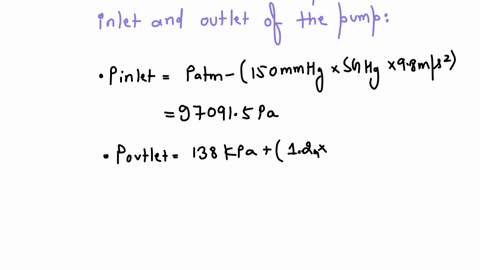 inlet and outlet of the pump:
• Pinlet = Patm - (150mmHg × SG Hg × 9.8m/s²)
= 97091.5 Pa
• Poutlet = 138 kPa + (1.2 ×